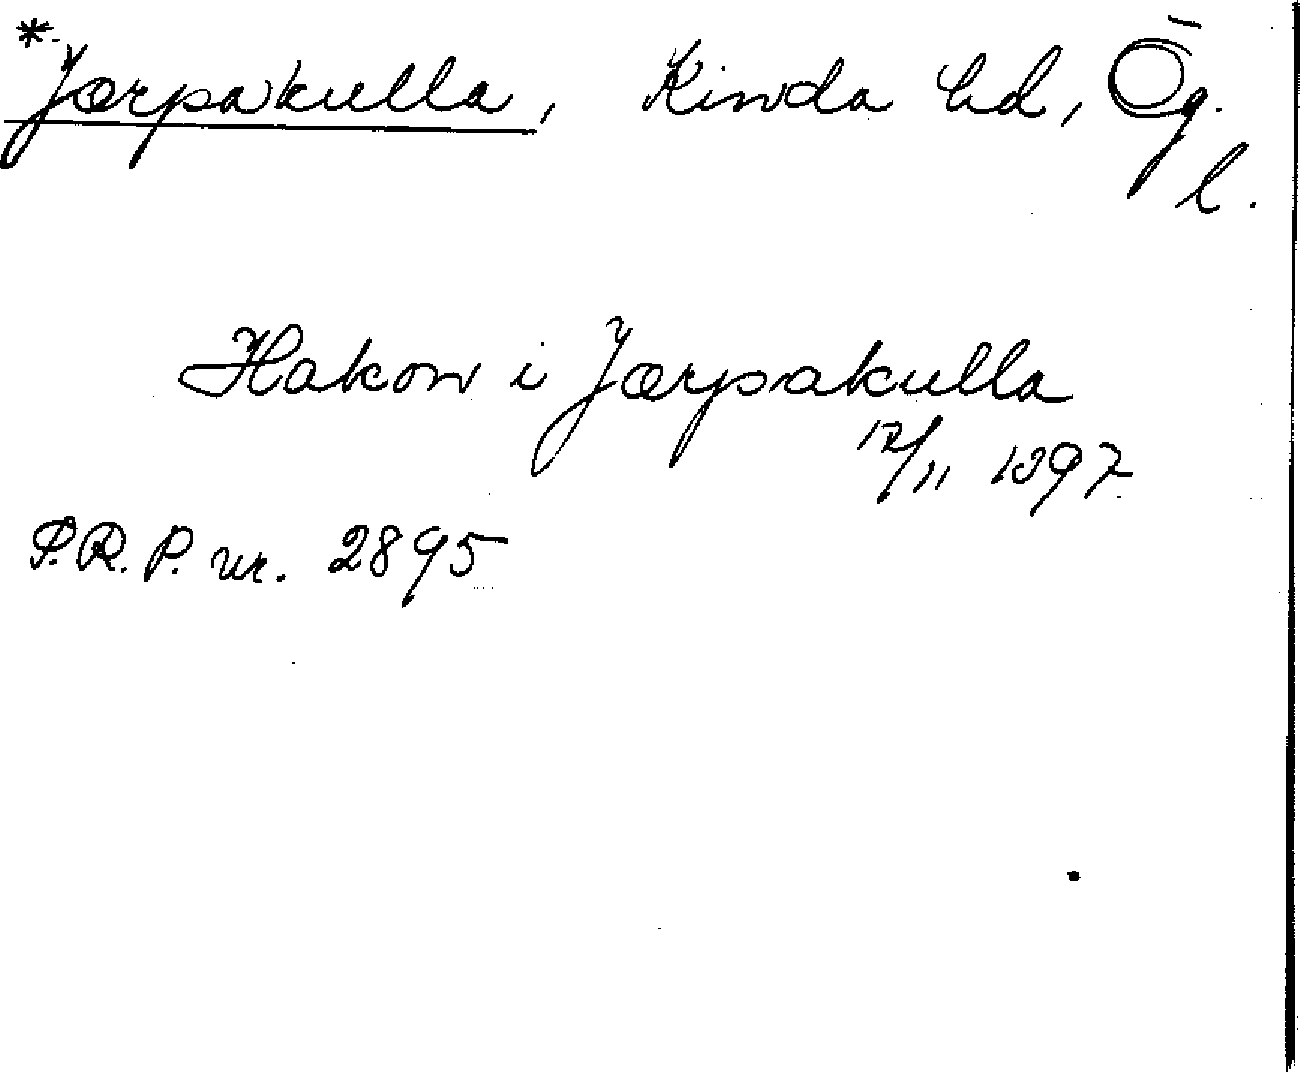 *Jærpakulla, Kinda hd, Ög. l.
Hakon i Jærpakulla
12/11 1397.
P.R.P. nr. 2895